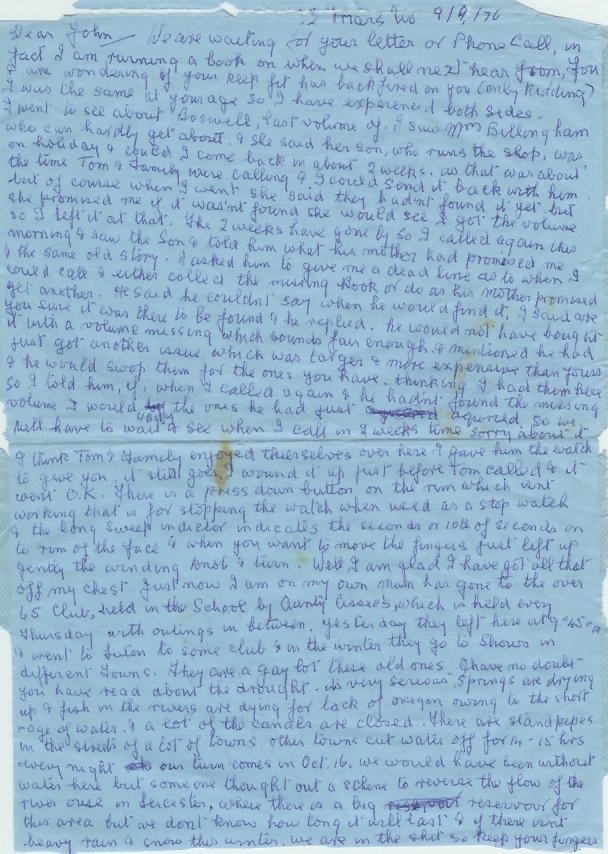 12 Mars Wo 9/9/76
Dear John We are waiting for your letter or Phone Call, in
fact I am running a book on when we shall next hear from, You
I are wondering if your keep fit has backfired on you (only kidding)
I was the same at your age so I have experienced both sides.
I went to see about Boswell, last volume of. I saw Mrs Billingham
who can hardly get about. & she said her son, who runs the shop, was
on holiday & could I come back in about 2 weeks. as that was about
the time Tom & Family were calling & I could send it back with him.
but of course when I went she said they hadn't found it yet but
she promised me if it wasn't found she would see I got the volume
so I left it at that. The 2 weeks have gone by so I called again this
morning & saw the Son & told him what his mother had promised me
& the same old story. I asked him to give me a dead line as to when I
could call & either collect the missing Book or do as his mother promised
get another. He said he couldn't say when he would find it. I said are
you sure it was there to be found & he replied. he would not have bought
it with a volume missing which sounds fair enough. & mentioned he had
just got another issue which was larger & more expensive than yours
& he would swop them for the ones you have. thinking I had them here
so I told him, if, when I called again & he hadn't found the missing
volume I would, the ones he had just aquired so we
will have to wait & see when I call in 2 weeks time sorry about it
I think Tom & Family enjoyed themselves over here I gave him the watch
to give you, it still goes, I wound it up just before Tom called & it
went O.K. There is a press down button on the rim which isnt
working that is for stopping the watch when used as a stop watch
& the long sweep indictor indicates the seconds or 10th of seconds on
to rim of the face & when you want to move the fingers just left up
gently the winding knob & turn. Well I am glad I have got all that
off my chest. Just now I am on my own mum has gone to the over
65 Club, held in the School by Aunty Cissie's, which is held every
Thursday with outings in between. yesterday they left here at 9-45 am
& went to Luton to some club & in the winter they go to Shows in
different Towns. They are a gay lot these old ones. I have no doubt
you have read about the drought. its very serious. Springs are drying
up & fish in the rivers are dying for lack of oxegen owing to the short
-age of water. & a lot of the canals are closed. There are standpipes
in the streets of a lot of towns other towns cut water off for 14-15 hrs
every night our turn comes in Oct. 16. we would have been without
water here but some one thought out a scheme to reverse the flow of the
river ouse in Leicester, where there is a big reservour for
this area but we dont know how long it will last & if there isnt
heavy rain & snow this winter. we are in the shit so keep your fingers